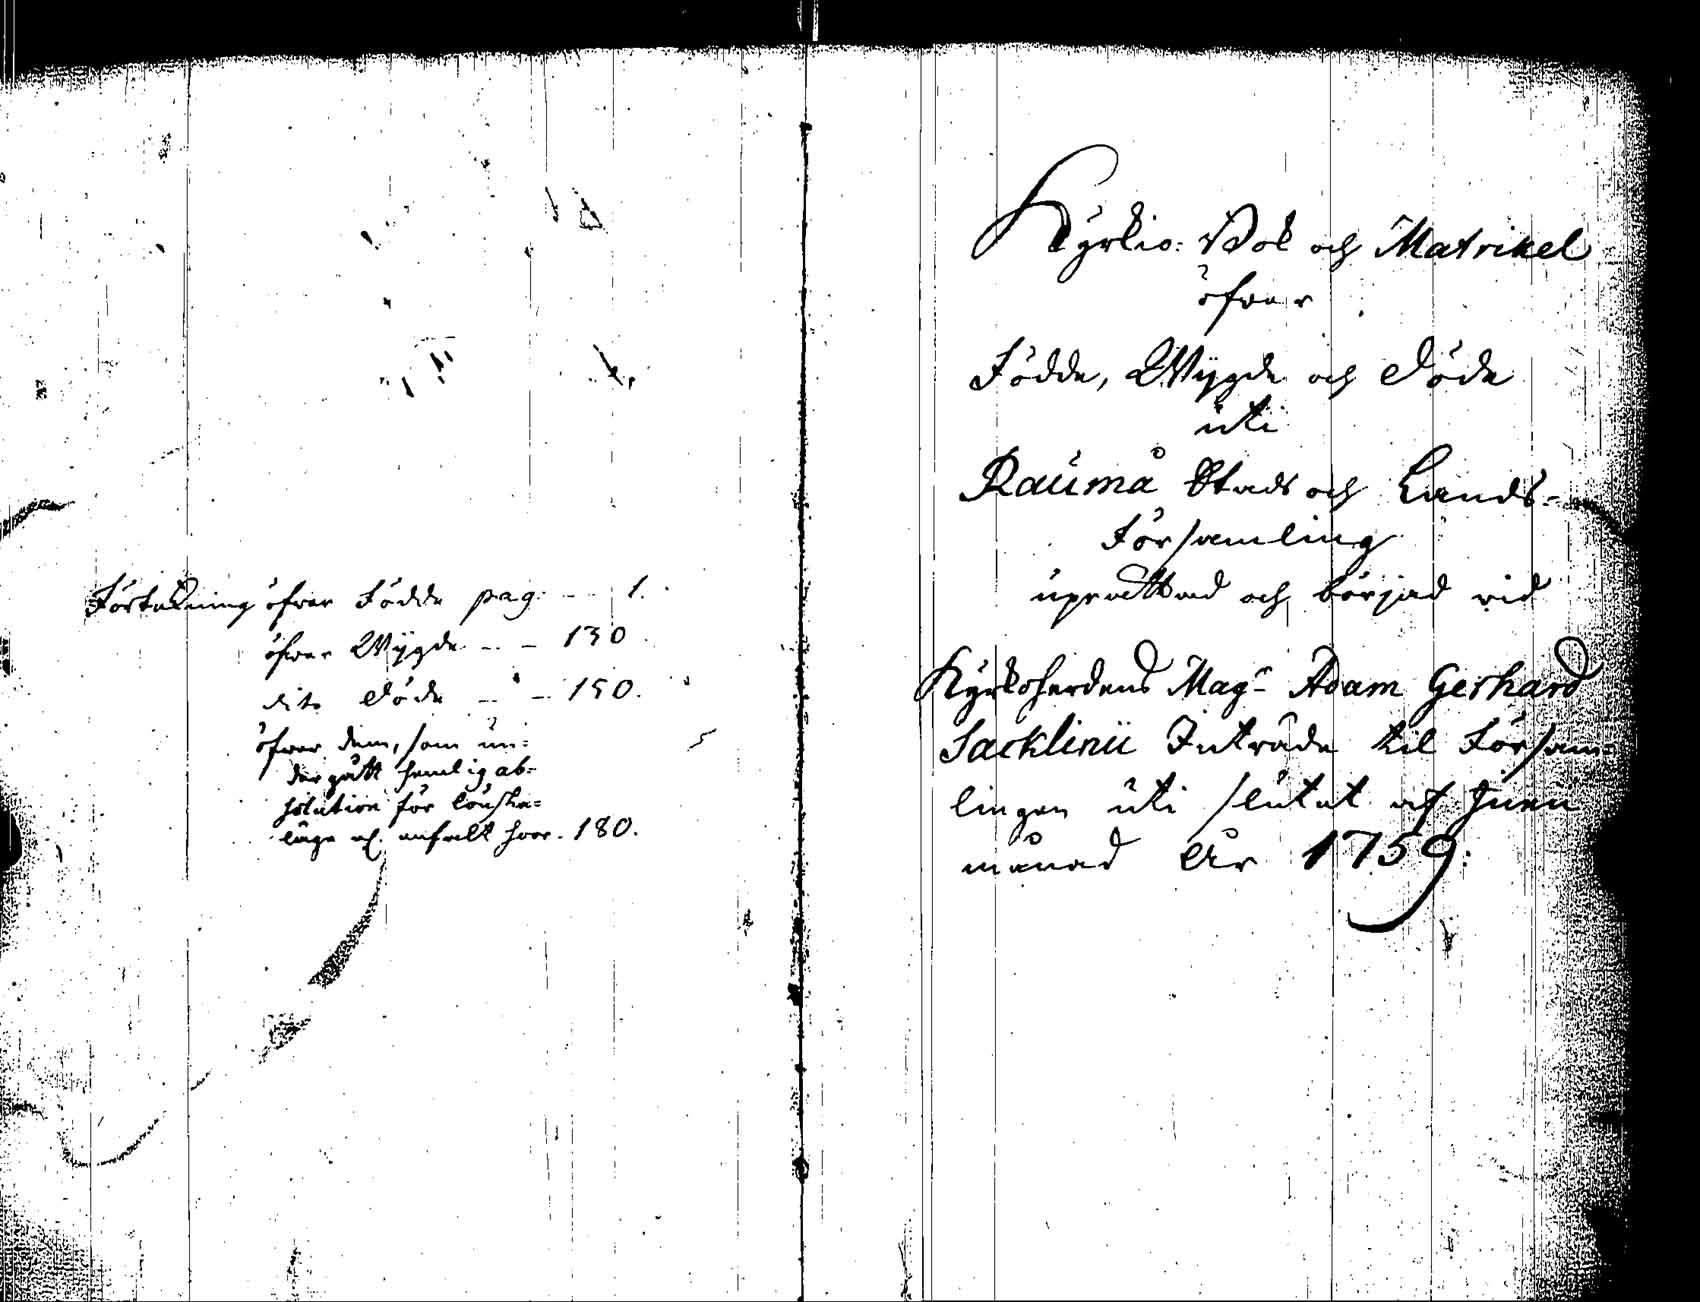 Förtekning öfver Födde pag. - - 1.
öfver Wÿgde - - 130
dito Döde - - 150.
öfver dem, som un=
dergått hemlig ab-
solution för löuska=
läge af enfalt hvar. 180.
Kÿrkio: Bok och Matrikel
öfver
Födde, Wÿgde och Döde
uti
Raumå Stads och Lands-
Församling
uprättad och börjad vid
Kÿrkoherdens Mag:r Adam Gerhard
Sacklinii Inträde til Försam=
lingen uti slutet af Junii
månad År 1759: